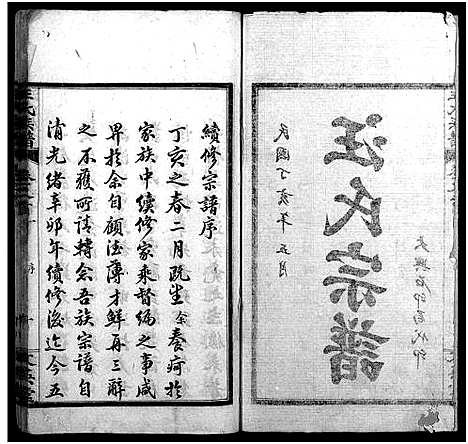 民國丁亥年五月
汪氏宗譜
大興石印局代印
續修宗譜序
丁亥之春二月既望余養疴於
家族中續修家乘督編之事咸
畀於余自顧德薄才鮮再三辭
之不獲所請轉念吾族宗譜自
清光緒辛卯年續修後迄今五